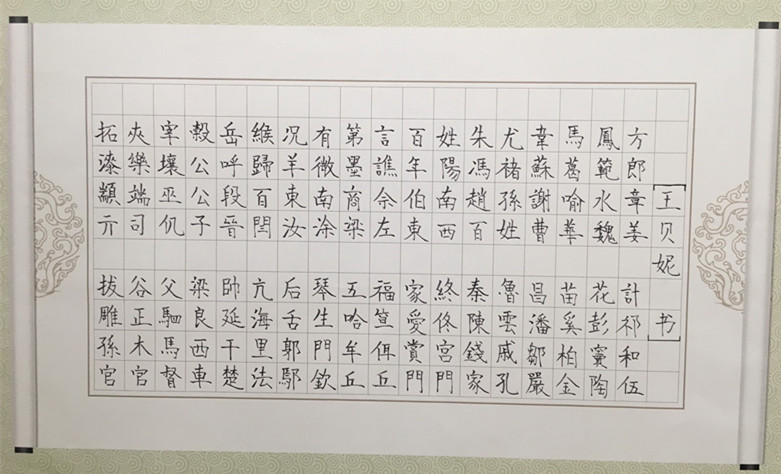 [王贝妮 书]
方郎章姜 計祁和伍
鳳範水魏 花彭竇陶
馬葛喻華 苗奚柏金
韋蘇謝曹 昌潘鄒嚴
尤褚孫姓 魯雲戚孔
朱馮趙百 秦陳錢家
姓陽南西 終佟宮門
百年伯東 家愛賞門
言譙佘左 福笪佴丘
第墨商梁 互哈牟丘
有微南涂 琴生門欽
況羊東汝 后舌郭鄢
緱歸百閆 亢海里法
岳呼段晉 帥延干楚
穀公公子 梁良西車
宰壤巫仉 父駟馬督
夾樂端司 谷正木官
拓漆顓亓 拔雕孫官